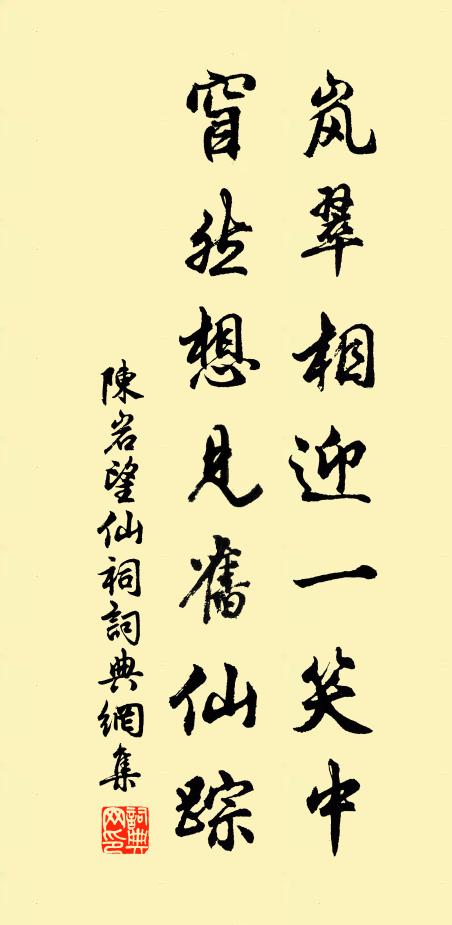 岚翠相迎一笑中
窅然想見舊仙踪
陳岩望仙祠詞典網集
詞典網印